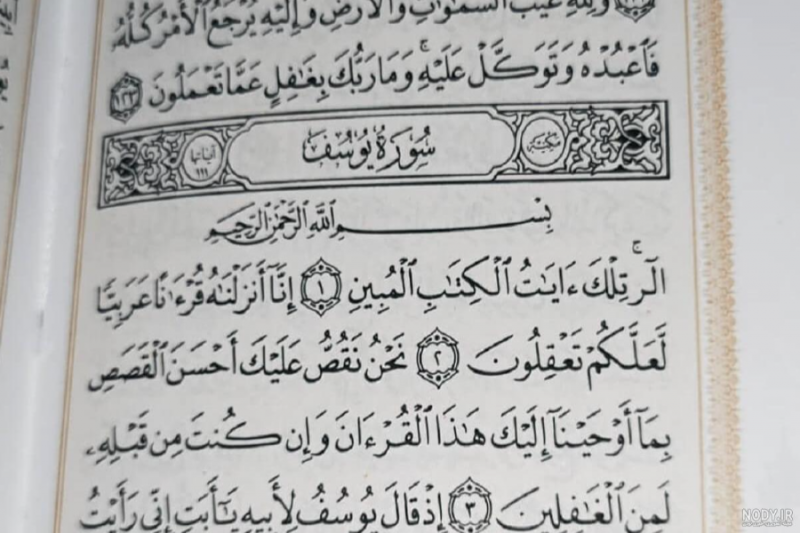 وَلِلَّهِ غَيْبُ ٱلسَّمَٰوَٰتِ وَٱلْأَرْضِ وَإِلَيْهِ يُرْجَعُ ٱلْأَمْرُ كُلُّهُۥ
فَٱعْبُدْهُ وَتَوَكَّلْ عَلَيْهِ ۚ وَمَا رَبُّكَ بِغَٰفِلٍ عَمَّا تَعْمَلُونَ ١٢٣
مكيّة سُورَةُ يُوسُفَ آياتها ١١١
بِسْمِ ٱللَّهِ ٱلرَّحْمَٰنِ ٱلرَّحِيمِ
الٓر ۚ تِلْكَ ءَايَٰتُ ٱلْكِتَٰبِ ٱلْمُبِينِ ١ إِنَّآ أَنزَلْنَٰهُ قُرْءَٰنًا عَرَبِيًّا
لَّعَلَّكُمْ تَعْقِلُونَ ٢ نَحْنُ نَقُصُّ عَلَيْكَ أَحْسَنَ ٱلْقَصَصِ
بِمَآ أَوْحَيْنَآ إِلَيْكَ هَٰذَا ٱلْقُرْءَانَ وَإِن كُنتَ مِن قَبْلِهِۦ
لَمِنَ ٱلْغَٰفِلِينَ ٣ إِذْ قَالَ يُوسُفُ لِأَبِيهِ يَٰٓأَبَتِ إِنِّى رَأَيْتُ
NODY.IR